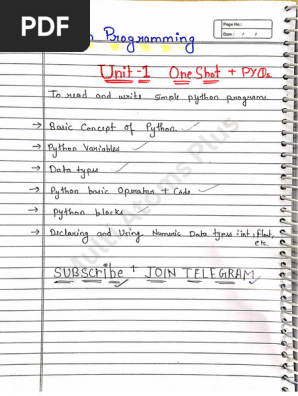 PDF
Programming
Page No.:
Date: / /
Unit-1 One Shot + PYQs
To read and write simple python program.
→ Basic Concept of Python.
→ Python Variables
→ Data types
→ Python basic Operator + Code
→ Python blocks
→ Declaring and Using Numeric Data types: int, float,
etc.
SUBSCribe + JOIN TELEGRAM
Multi Atoms Plus